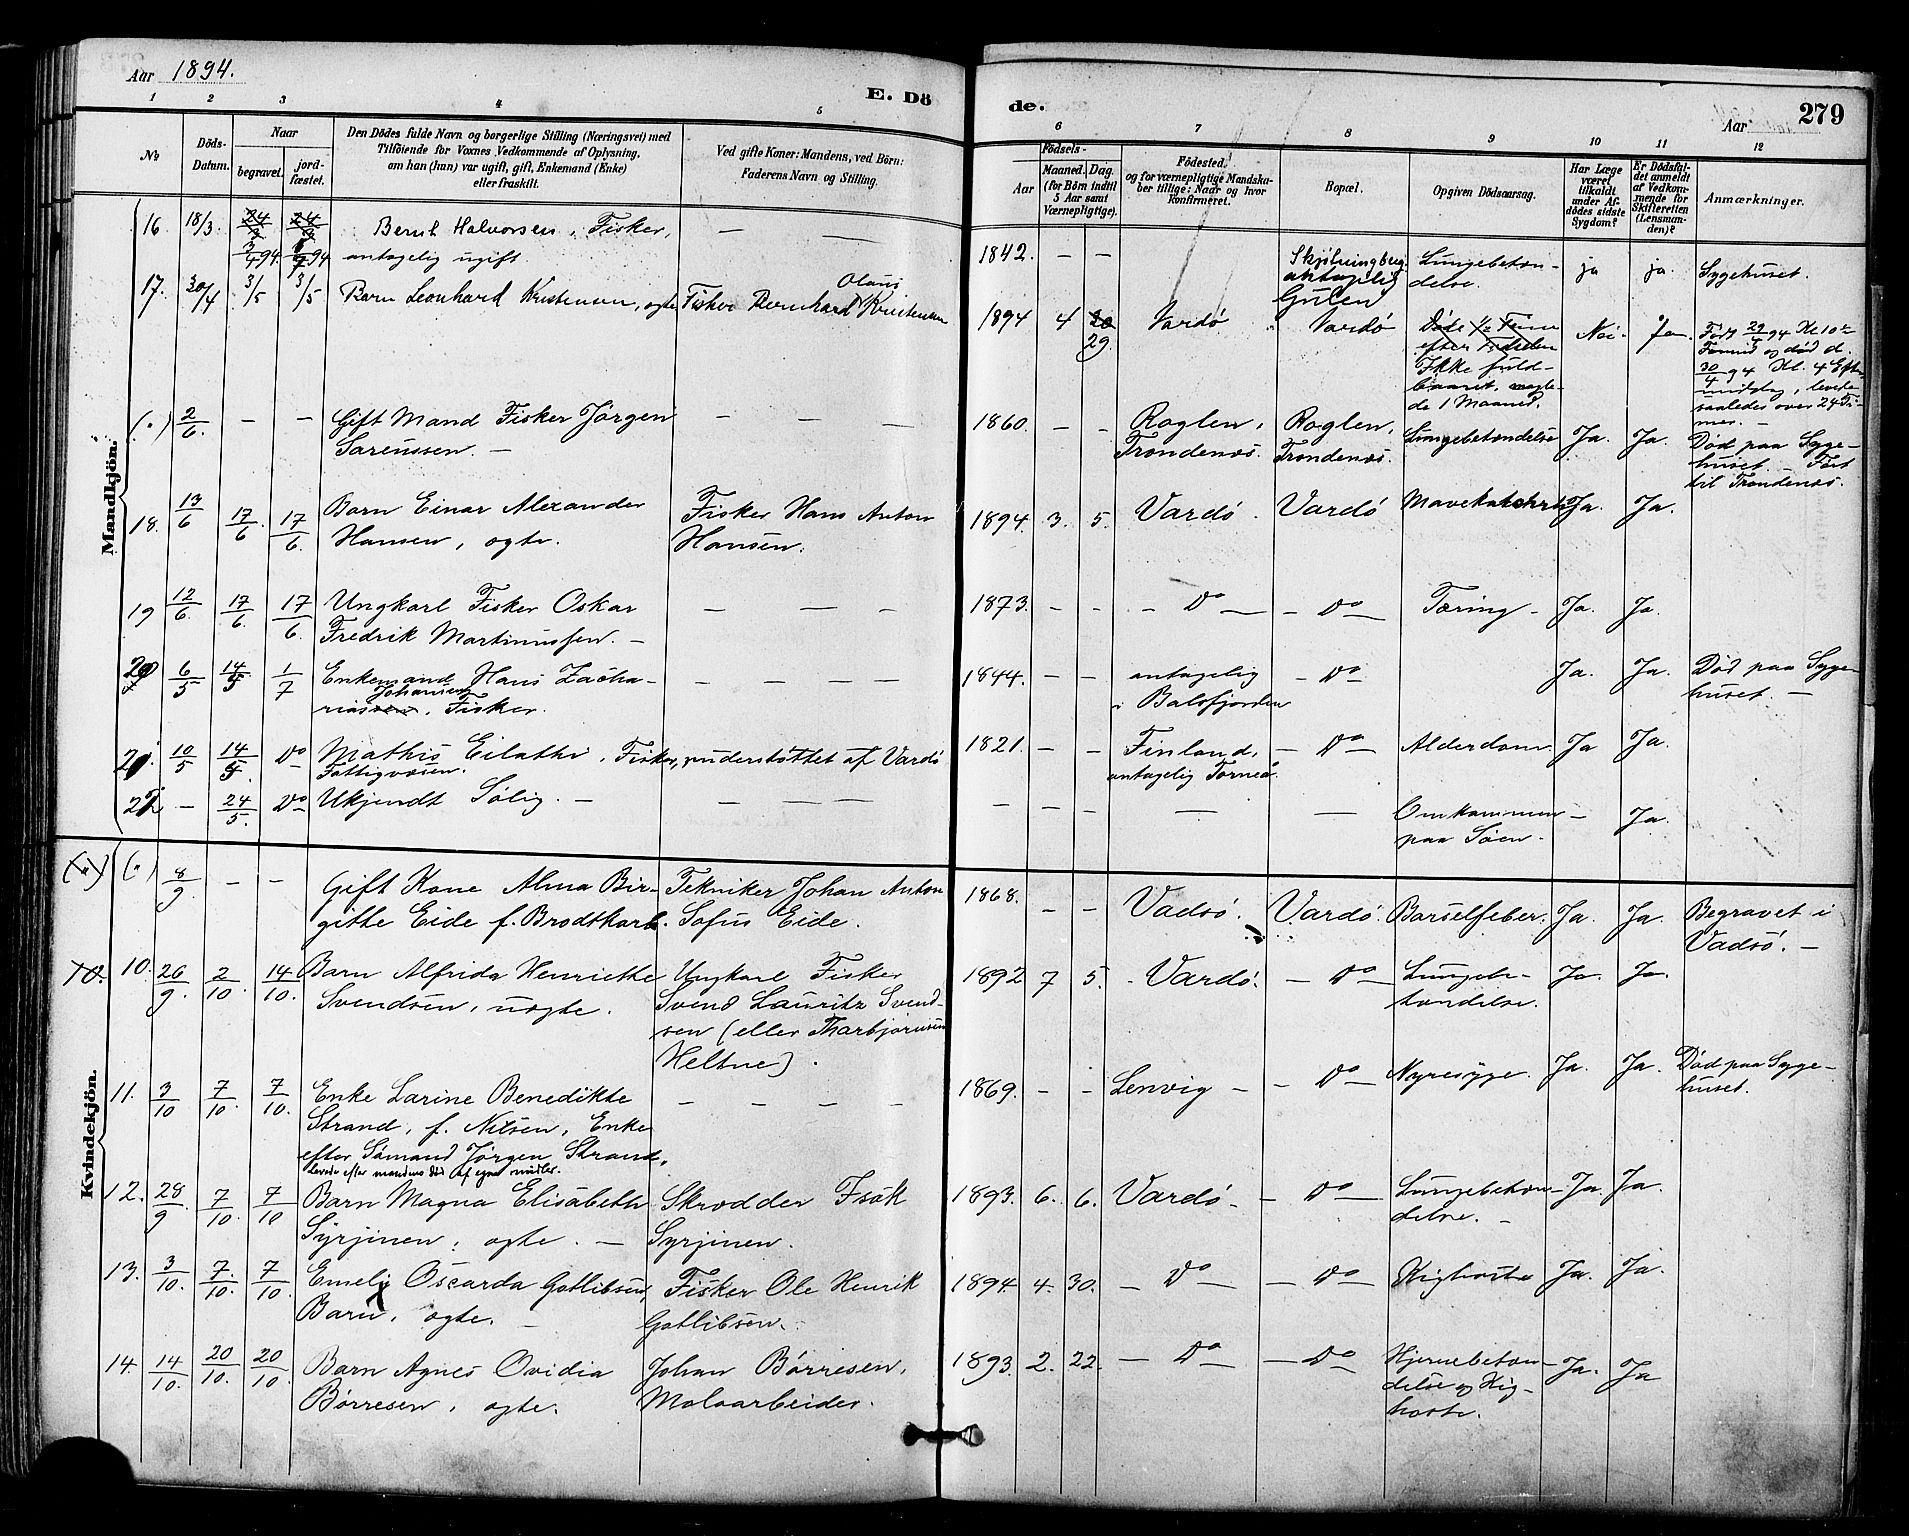 Aar 1894.
E. Dö
de.
279
Aar
1 2 3 4 5
6 7 8 9 10 11 12
No
Döds-Datum.
Naar
begravet.
jord-fæstet.
Den Dödes fulde Navn og borgerlige Stilling (Næringsvei) med
Tilföiende for Voxnes Vedkommende af Oplysning,
om han (hun) var ugift, gift, Enkemand (Enke)
eller fraskilt.
Ved gifte Koner: Mandens, ved Börn:
Faderens Navn og Stilling.
Födsels-
Aar
Maaned. Dag.
(for Börn indtil
5 Aar samt
Værnepligtige).
Födested,
og for værnepligtige Mandska-
ber tillige: Naar og hvor
konfirmeret.
Bopæl.
Opgiven Dödsaarsag.
Har Læge
været
tilkaldt
under Af-
dödes sidste
Sygdom?
Er Dödsfal-
det anmeldt
af Vedkom-
mende for
Skifteretten
(Lensman-
den)?
Anmærkninger.
Mandkjön.
16. 18/3 24/3 24/3 Bernt Halvorsen, Fisker, — —
3/4 94 3/4 94 antagelig ugift
1842. — — Skjötningberg Lungebeton- ja ja. Sygehuset.
antagelig delse.
Gulen
17. 30/4 3/5 3/5 Barn Leonhard Kristensen, ægte Fisker Bernhard Olaus Kristensen
1894 4 30 Vardö Vardö Döde 1/2 Time Nei. Ja. Født 29/4 94 Kl 10
29. efter Födselen Formid og død d.
Ikke fuld- 30/4 94 Kl. 4 Efter-
baaret, magle- middag, levede
de 1 Maaned. saaledes over 24 Ti-
mer. —
(.) 2/6. — — Gift Mand Fisker Jørgen — —
Sørenssen. —
1860. — — Roglen, Roglen, Lungebetændelse Ja. Ja. Død paa Syge-
Trondenæs. Trondenæs. huset. — Ført
til Trondenæs.
18. 13/6 17/6. 17/6. Barn Einar Alexander Fisker Hans Anton
Hansen, ægte. Hansen.
1894. 3. 5. Vardö. Vardö Mavekatarrh Ja. Ja.
19 12/6. 17/6. 17/6. Ungkarl Fisker Oskar — — —
Fredrik Martinussen. —
1873. — — — Do — — Do Tæring — Ja. Ja.
20 6/5 14/5 1/7 Enkemand Hans Zacha- — — — —
Johansen
riassen, Fisker.
1844. — — antagelig — Do — Ja. Ja. Død paa Syge-
i Balsfjorden huset. —
21. 10/5 14/5. Do Mathis Eilathi, Fisker, understöttet af Vardö
Fattigvæsen.
1821. — — Finland, — Do — Alderdom Ja Ja.
antagelig Torneå.
22 — 24/5. Do Ukjendt Sølig. — — — —
— — — — — Omkommen — Ja.
paa Søen.
Kvindekjön.
(.) 8/9 — — Gift Kone Alma Bir- Tekniker Johan Anton
gitte Eide f. Brodtkorb. Sofus Eide.
1868. — — Vadsö. Vardö. Barselfeber. Ja. Ja. Begravet i
Vadsö. —
10. 10. 26/9. 2/10. 14/10. Barn Alfrida Henriette Ungkarl Fisker
Svendsen, uægte. Svend Lauritz Svend-
sen (eller Thorbjørnsen
Heltne).
1892 7 5. Vardö. — Do — Lungebe- Ja. Ja.
tændelse.
11. 3/10 7/10. 7/10. Enke Larine Benedikte — — — —
Strand, f. Nilsen, Enke
efter Sømand Jørgen Strand.
Levede efter mandens død af egne midler.
1869. — — Lenvig — — Do — Nyresyge. Ja. Ja. Død paa Syge-
huset.
12. 28/9 7/10. 7/10 Barn Magna Elisabeth Skrædder Isak
Syrjinen, ægte. — Syrjinen.
1893. 6. 6. Vardö — — Do — Lungebetæn- Ja. Ja.
delse. —
13. 3/10. 7/10. 7/10 Emely Oscarda Gotlibsen, Fisker Ole Henrik
Barn, ægte. — Gotlibsen.
1894. 4. 30. — Do — — Do Kighoste Ja. Ja.
14. 14/10. 20/10. 20/10 Barn Agnes Ovidia Johan Børresen,
Børresen, ægte. Moloarbeider.
1893. 2. 22. — Do — — Do Hjernebetæn- Ja. Ja
delse og Kig-
hoste.